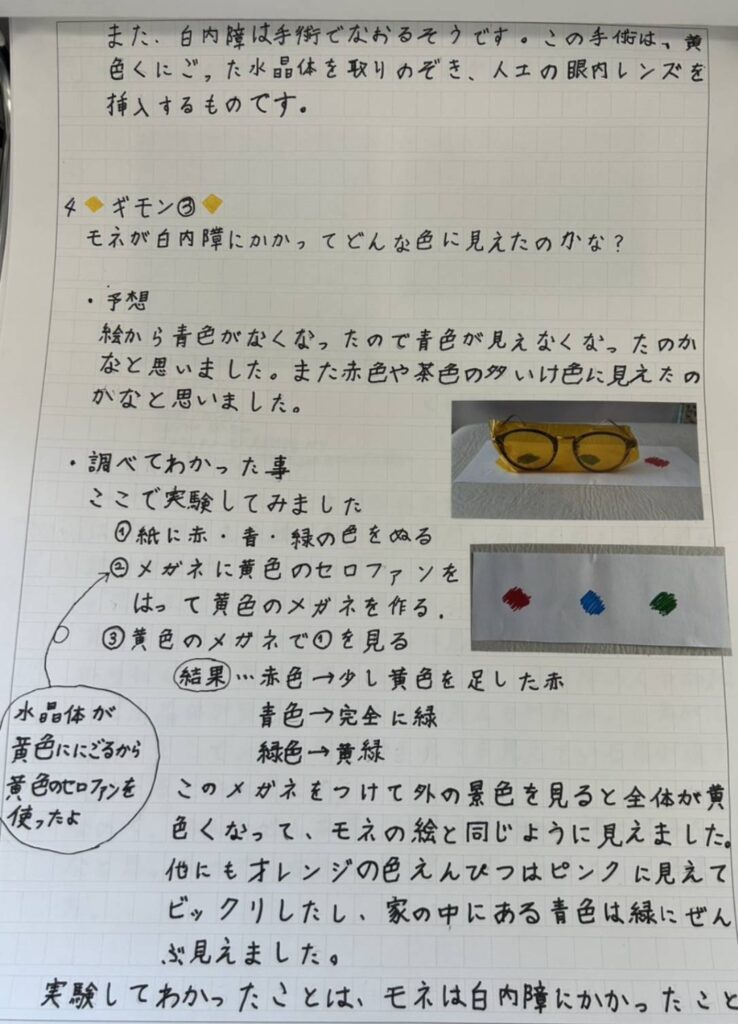 また、白内障は手術でなおるそうです。この手術は、黄
色くにごった水晶体を取りのぞき、人工の眼内レンズを
挿入するものです。
4 🔶ギモン③🔶
モネが白内障にかかってどんな色に見えたのかな？
・予想
絵から青色がなくなったので青色が見えなくなったのか
なと思いました。また赤色や茶色の多いけ色に見えたの
かなと思いました。
・調べてわかった事
ここで実験してみました
①紙に赤・青・緑の色をぬる
②メガネに黄色のセロファンを
はって黄色のメガネを作る.
③黄色のメガネで①を見る
結果…赤色→少し黄色を足した赤
青色→完全に緑
緑色→黄緑
水晶体が
黄色ににごるから
黄色のセロファンを
使ったよ
このメガネをつけて外の景色を見ると全体が黄
色くなって、モネの絵と同じように見えました。
他にもオレンジの色えんぴつはピンクに見えて
ビックリしたし、家の中にある青色は緑にぜん
ぶ見えました。
実験してわかったことは、モネは白内障にかかったこと